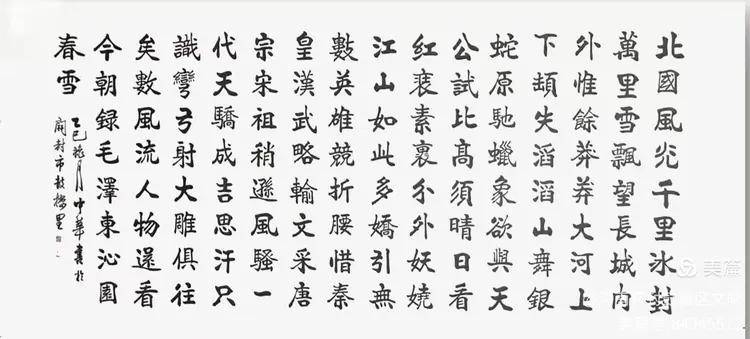 北國風光千里冰封
萬里雪飄望長城内
外惟餘莽莽大河上
下頓失滔滔山舞銀
蛇原馳蠟象欲與天
公試比高須晴日看
紅裝素裹分外妖嬈
江山如此多嬌引無
數英雄競折腰惜秦
皇漢武略輸文采唐
宗宋祖稍遜風騷一
代天驕成吉思汗只
識彎弓射大雕俱往
矣數風流人物還看
今朝録毛澤東沁園
春雪
乙巳月中華書於
開封市鼓樓里
美篇